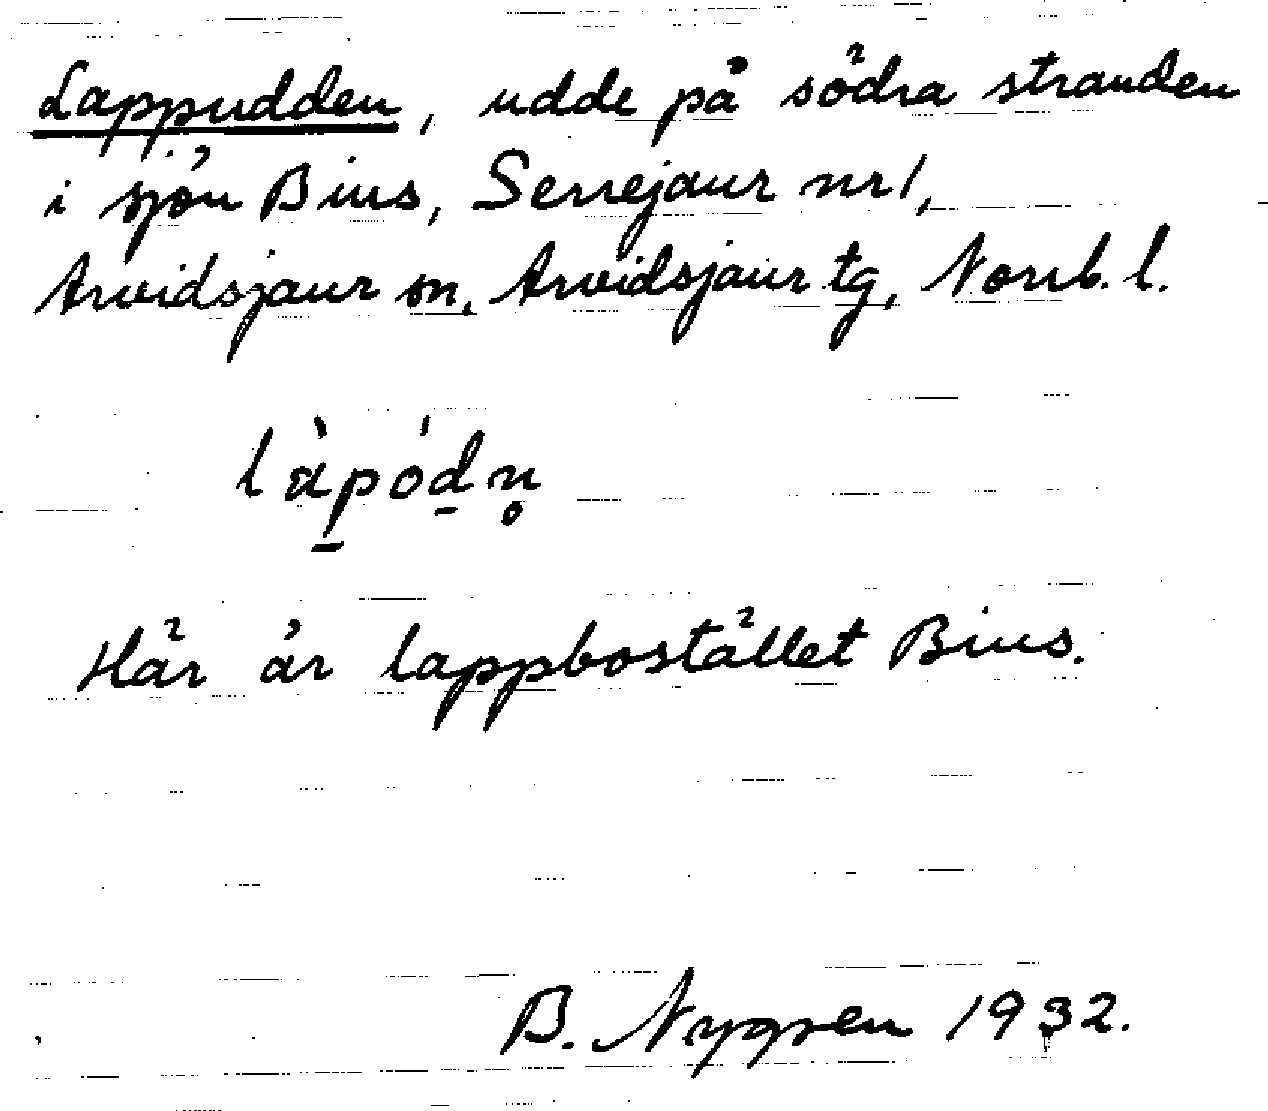 Lappudden, udde på södra stranden
i sjön Bius, Serrejaur nr 1,
Arvidsjaur sn, Arvidsjaur tg, Norrb. l.
là̱pód̲n̥
Här är lappbostället Bius.
B. Nygren 1932.